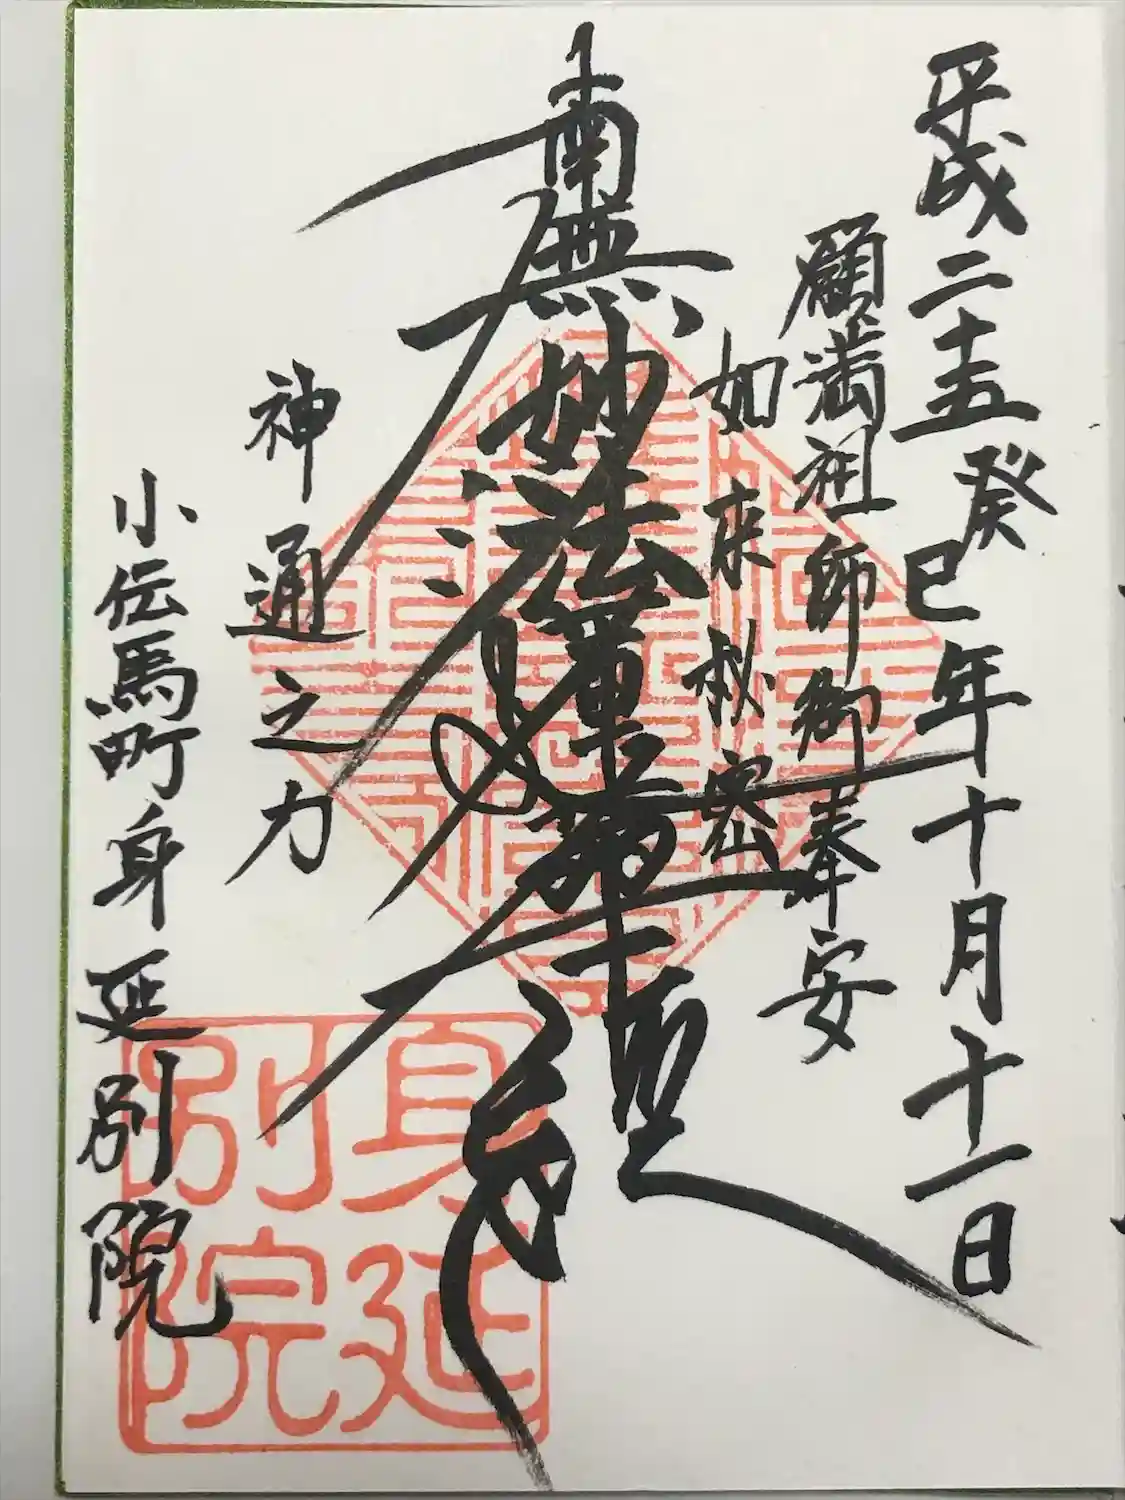 平成二十五癸巳年十月十一日
願満祖師御奉安
如来秘密
南無妙法蓮華経
神通之力
小伝馬町身延別院
身延別院